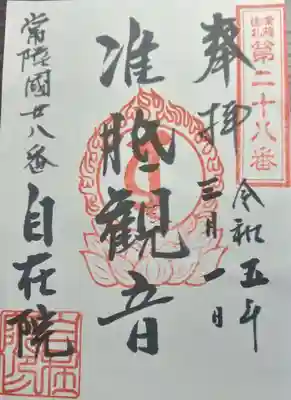 第二十八番
奉拝
令和五年
三月一日
准胝觀音
常陸國廿八番
自在院